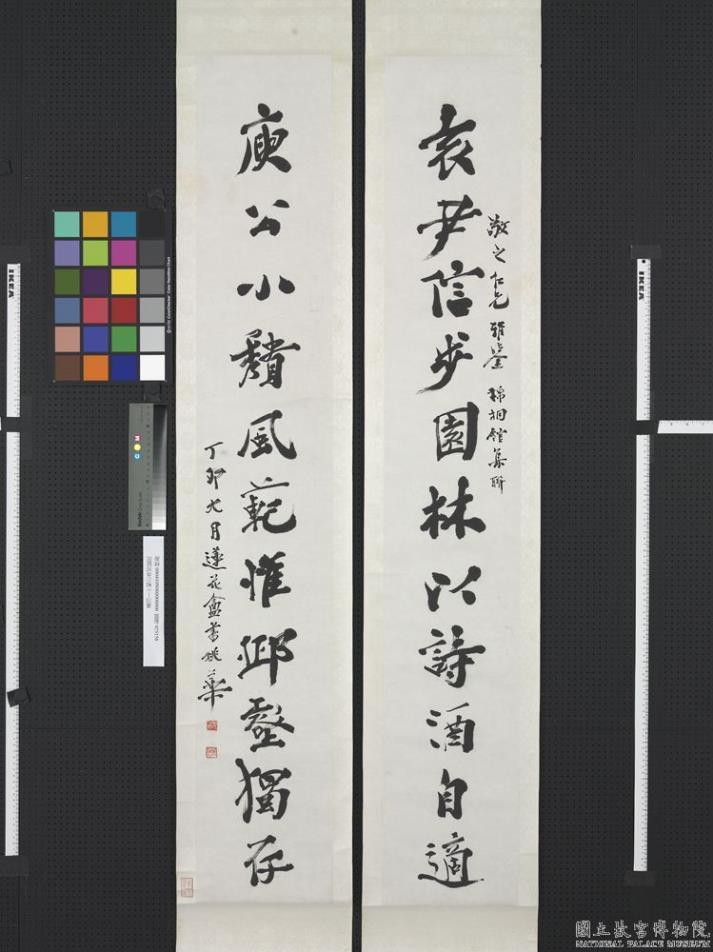 袁尹信步園林以詩酒自適
敬之仁兄雅鑒 綿桐館集聯
庾公小頹風範惟邱壑獨存
丁卯九月蓮花盦書姚華
IKEA
IKEA
國立故宮博物院
NATIONAL PALACE MUSEUM